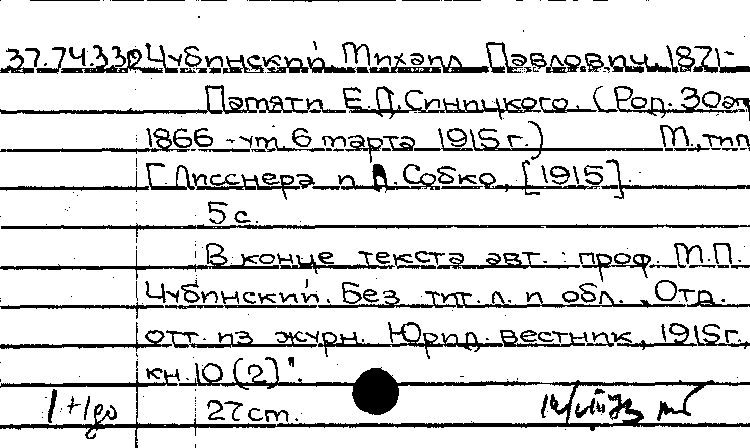 37.74.330 Чубинский, Михаил Павлович, 1871-
Памяти Е.Д.Синицкого. (Род. 30 ап
1866 - ум. 6 марта 1915 г.) М., тип
Г.Лисснера и Д.Собко, [1915].
5 с.
В конце текста авт.: проф. М.П.
Чубинский. Без тит.л. и обл. „Отд.
отт. из журн. Юрид. вестник, 1915г.,
кн. 10 (2)".
1+1до 27 см.